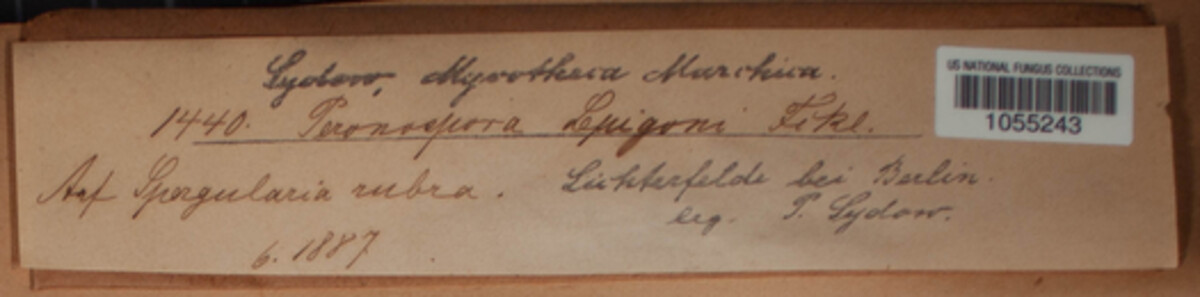 Sydow, Mycotheca Marchica.
1440. Peronospora Lepigoni Fckl.
Auf Spergularia rubra. Lichterfelde bei Berlin.
leg. P. Sydow.
6. 1887
US NATIONAL FUNGUS COLLECTIONS
1055243